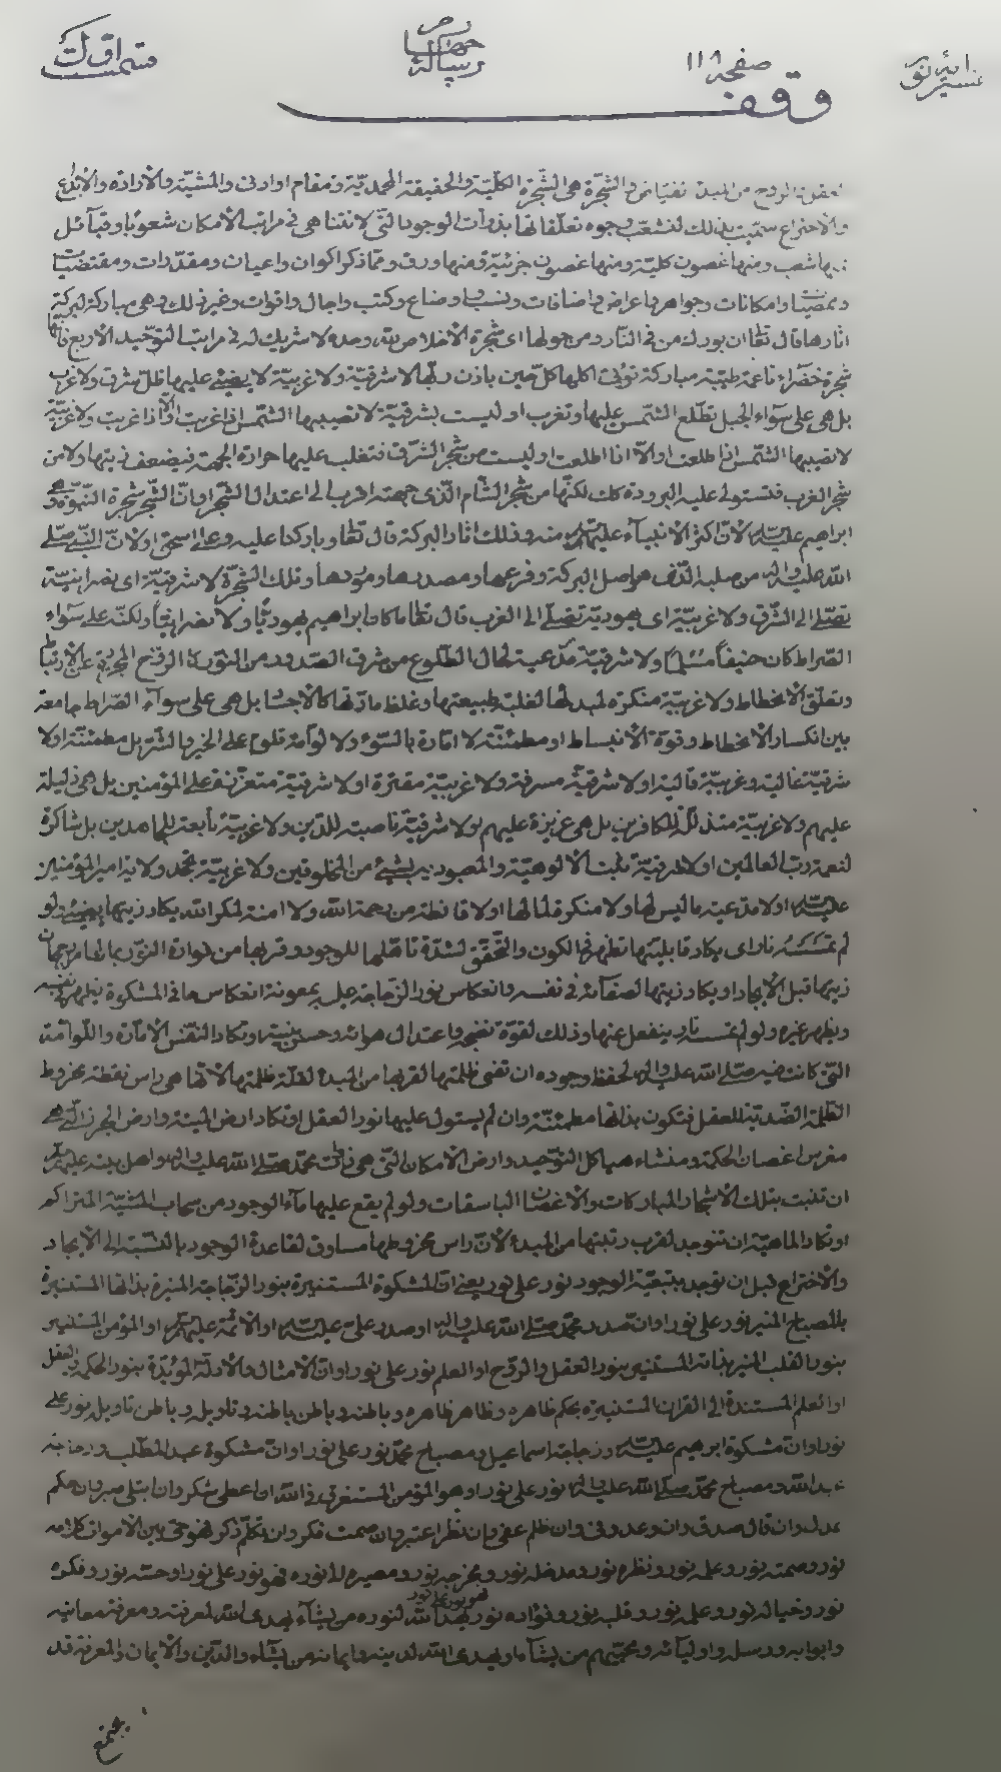 تفسير اية نور
صفحه ١١٨
رساله
قسمت اول
وقف
من الشجرة هي الشجرة الكلية والحقيقة المحمدية ومقام او ادنى والمشية والارادة والابداع
والاختراع سميت بذلك لتشعب وجوه تعلقاتها بذوات الوجود التي لا تتناهى في مراتب الامكان شعوبا وقبائل
شعب ومنها غصون كلية ومنها غصون جزئية ومنها ورق وثمار ذكر اكوان واعيان ومقدرات ومقتضيات
وامكانات وجواهر واعراض واضافات ونسب واوضاع وكتب واجال واقوات وغير ذلك وهي مباركة لبركة
اثارها قال تعالى ان بورك من في النار ومن حولها اي شجرة الاخلاص لله وحده لا شريك له في مراتب التوحيد الاربع فانها
شجرة خضراء ناعمة طيبة مباركة تؤتى اكلها كل حين باذن ربها لا شرقية ولا غربية لا يفئ عليها ظل شرق ولا غرب
بل هي على سواء الجبل تطلع الشمس عليها وتغرب او ليست بشرقية لا تصيبها الشمس اذا غربت ولا غربية
لا تصيبها الشمس اذا طلعت او ليست من شجر الشرق فتغلب عليها حرارة الجهة فيضعف زيتها ولا من
شجر الغرب فتستولي عليه البرودة كك لكنها من شجر الشام الذى جهته اقرب الى اعتدال الشجر او ان الشجر شجرة النبوة وهي
ابراهيم عليه السلام لان اكثر الانبياء عليهم السلام منه وذلك اثار البركة قال تعالى وباركنا عليه وعلى اسحق او لان النبي صلى
الله عليه واله من صلبه الذى هو اصل البركة وفرعها ومصدرها وموردها وتلك الشجرة لا شرقية اى نصرانية
تصلي الى الشرق ولا غربية اى يهودية تصلي الى الغرب قال تعالى ما كان ابراهيم يهوديا ولا نصرانيا ولكنه على سواء
الصراط كان حنيفا مسلما ولا شرقية مدعية لحال الطلوع من شرق الصدور من
وتعلق الانحطاط ولا غربية منكرة لمبدئها لغلبة طبيعتها وغلظ مادتها كالاجسام بل هي على سواء الصراط جامعة
بين انكسار الانحطاط وقوة الانبساط او مطمئنة لا امارة بالسوء ولا لوامة تلوم على الخير والشر بل مطمئنة او لا
شرقية غالية وغربية قالية او لا شرقية مسرفة ولا غربية مقترة او لا شرقية متعززة على المؤمنين بل هي ذليلة
عليهم ولا غربية متذللة للكافرين بل هي عزيزة عليهم او لا شرقية ناصبة للدين ولا غربية تابعة للجاحدين بل شاكرة
لنعمة رب العالمين او لا شرقية تثبت الالوهية والمعبودية لشيء من المخلوقين ولا غربية تجحد ولاية امير المؤمنين
عليه السلام او لا مدعية ما ليس لها ولا منكرة لما لها او لا قانطة من رحمة الله ولا امنة لمكر الله يكاد زيتها يضيء ولو
لم تمسسه نار اى يكاد قابليتها تظهر في الكون والتحقق لشدة تاهلها للوجود وقربها من
زيتها قبل الايجاد او يكاد زيتها لصفائه في نفسه وانعكاس نور الزجاجة عليه بمعونة انعكاس ما في المشكوة يظهر في نفسه
ويظهر غيره ولو لم تمسسه نار ينفعل عنها وذلك لقوة نضجه واعتدال هوائه وحسن بنيته او تكاد النفس الامارة واللوامة
التي كانت ضير صلى الله عليه واله لحفظ وجوده ان تفنى ظلمتها لقربها من المبدء لقلة ظلمتها لانها هي راس نقطة مخروط
الظلمة الضدية للعقل فتكون بذاتها مطمئنة وان لم يستول عليها نور العقل او تكاد ارض الميتة وارض الجرز التي هي
مغرس اغصان الحكمة ومنشاء هياكل التوحيد وارض الامكان التي هي ذات محمد صلى الله عليه واله واهل بيته عليهم السلام
ان تنبت بتلك الاشجار المباركات والاغصان الباسقات ولو لم يقع عليها ماء الوجود من سحاب المشية المتراكم
او تكاد الماهية ان توجد لقرب رتبتها من المبدء لان راس مخروطها مساوق لقاعدة الوجود بالنسبة الى الايجاد
والاختراع قبل ان توجد بتبعية الوجود نور على نور يعني ان المشكوة المستنيرة بنور الزجاجة المنيرة بذاتها المستنيرة
بالمصباح المنير نور على نور او ان صدر محمد صلى الله عليه واله او صدر على عليه السلام او الائمة عليهم السلام او المؤمن المستنير
بنور القلب المنير بذاته المستنير بنور العقل والروح او العلم نور على نور او ان الامثال والادلة المؤيدة بنور الحكمة والعقل
او العلم المستندة الى القران المستنيرة بحكم ظاهره وظاهر ظاهره وباطنه وباطن باطنه وتاويله وباطن تاويله نور على
نور او ان مشكوة ابرهيم عليه السلام وزجاجة اسماعيل ومصباح محمد نور على نور او ان مشكوة عبد المطلب وزجاجة
عبد الله ومصباح محمد صلى الله عليه واله نور على نور او هو المؤمن المستغرق في الله ان اعطى شكر وان ابتلى صبر وان حكم
عدل وان قال صدق وان وعد وفى وان ظلم عفى وان نظر اعتبر وان صمت فكر وان تكلم ذكر فهو حي بين الاموات كلامه
نور وصمته نور وعلمه نور ونظره نور ومدخله نور ومخرجه نور ومصيره الى نوره فهو نور على نور او حسه نور وفكره
نور وخياله نور وعلمه نور وقلبه نور وفؤاده نور فهو نور على نور يهدى الله لنوره من يشاء يهدى الله لمعرفته ومعرفة معانيه
وابوابه ورسله واوليائه ومحبتهم من يشاء او يهدى الله لدينه وايمانه من يشاء والدين والايمان والمعرفة قد
يجتمع